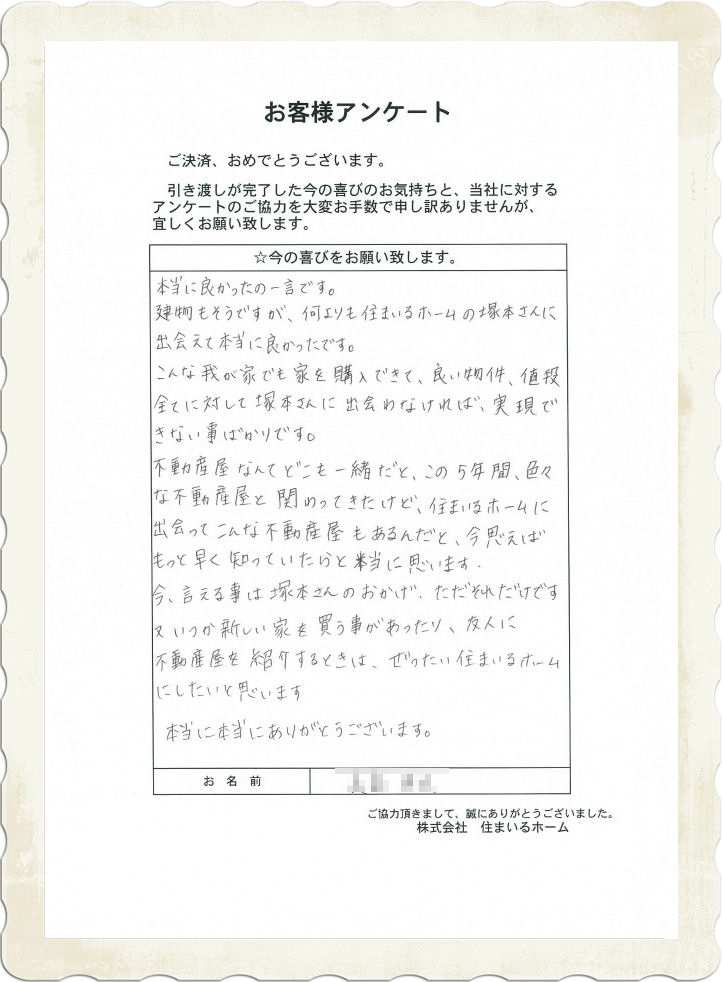 お客様アンケート
ご決済、おめでとうございます。
引き渡しが完了した今の喜びのお気持ちと、当社に対する
アンケートのご協力を大変お手数で申し訳ありませんが、
宜しくお願い致します。
☆今の喜びをお願い致します。
本当に良かったの一言です。
建物もそうですが、何よりも住まいるホームの塚本さんに
出会えて本当に良かったです。
こんな我が家でも家を購入できて、良い物件、値段
全てに対して塚本さんに出会わなければ、実現で
きない事ばかりです。
不動産屋なんてどこも一緒だと、この5年間、色々
な不動産屋と関わってきたけど、住まいるホームに
出会ってこんな不動産屋もあるんだと、今思えば
もっと早く知っていたらと本当に思います.
今、言える事は塚本さんのおかげ、ただそれだけです
又いつか新しい家を買う事があったり、友人に
不動産屋を紹介するときは、ぜったい住まいるホーム
にしたいと思います
本当に本当にありがとうございます。
お名前
ご協力頂きまして、誠にありがとうございました。
株式会社 住まいるホーム